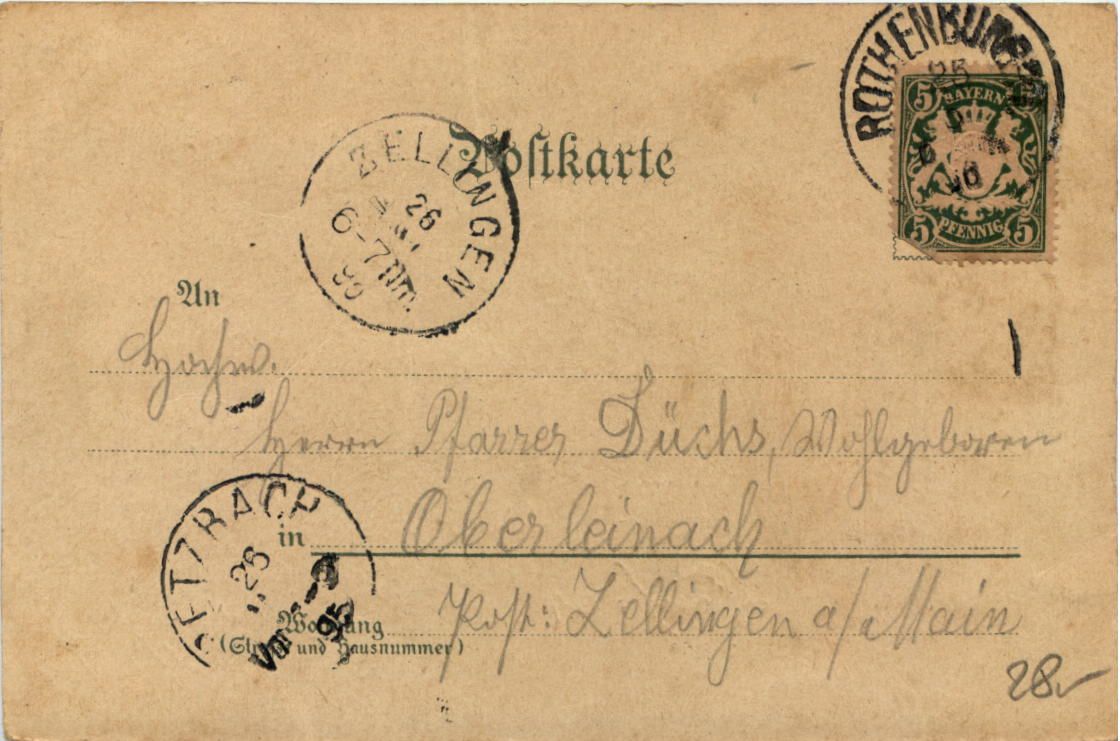 ROTHENBURG
25
5 BAYERN 5
5 PFENNIG 5
Poſtkarte
ZELLINGEN
26
6-7 Nm.
An
Hochw.
Herrn Pfarrer Düchs, Wohlgeboren
RETZBACH
26
in Oberleinach
Post: Zellingen a/Main
Wohnung
(Straße und Hausnummer)
28.-